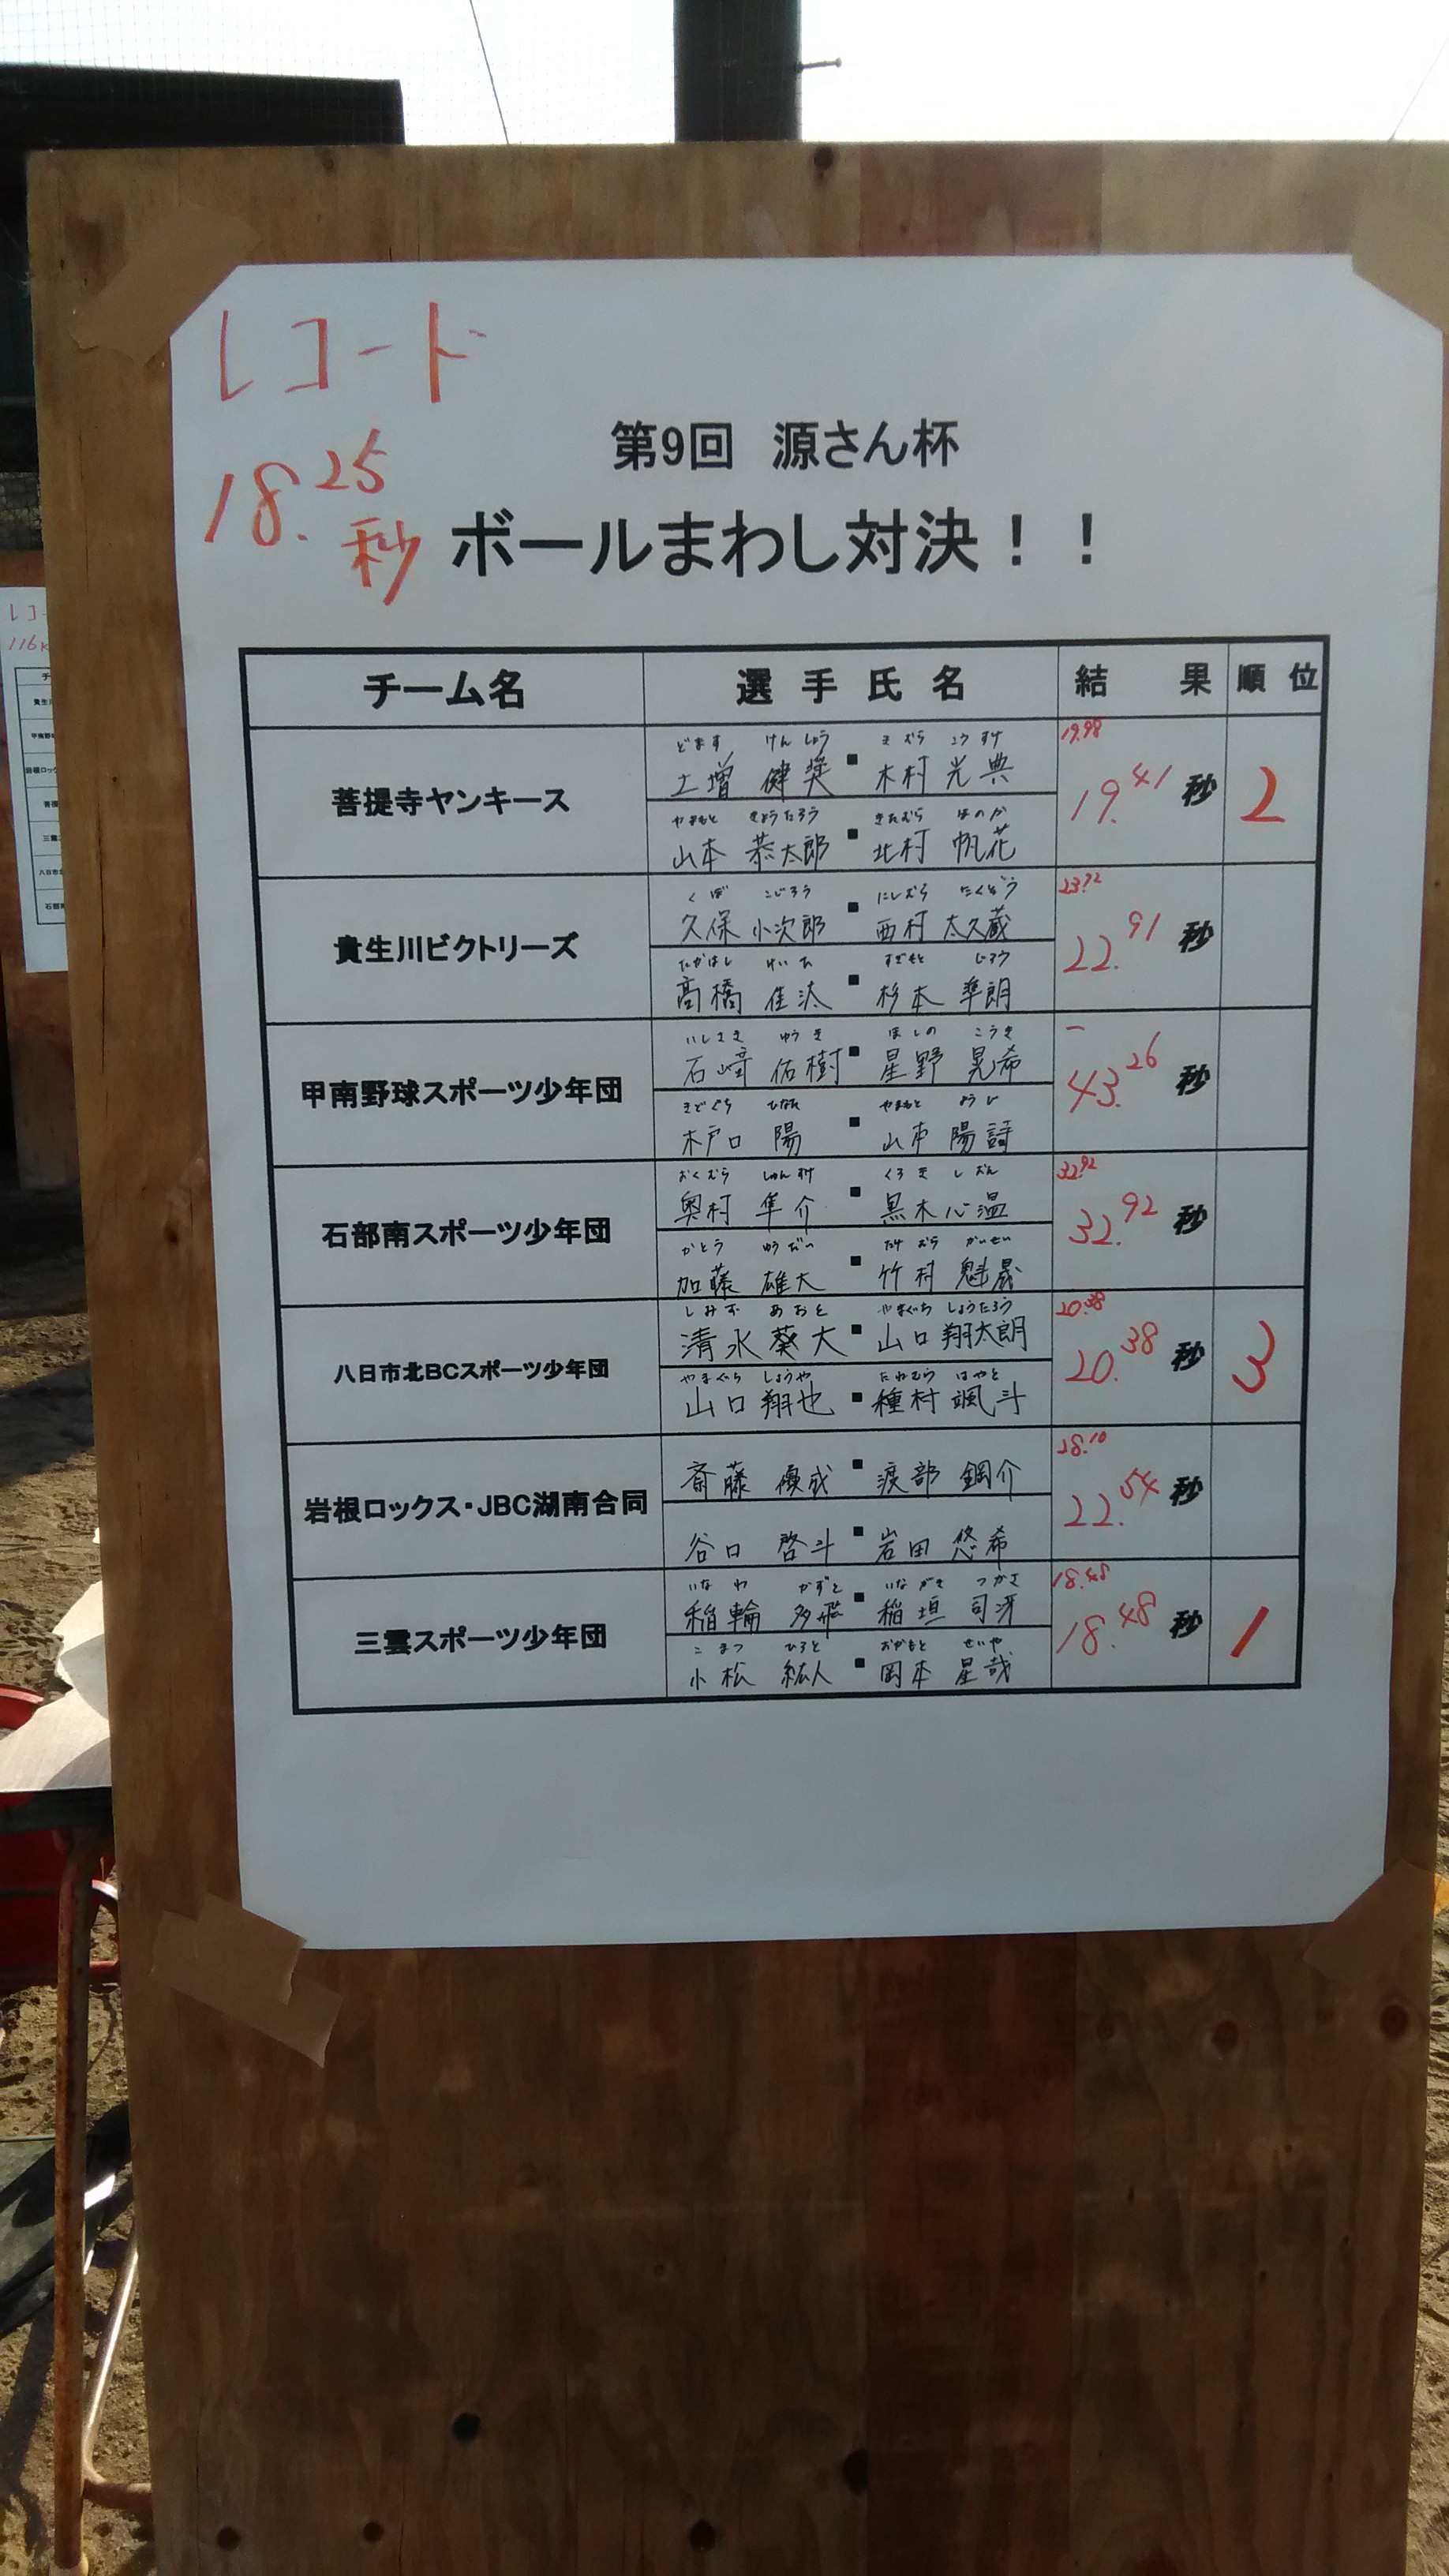 レコード
18.25秒
第9回 源さん杯
ボールまわし対決！！
チーム名 選手氏名 結果 順位
どます けんしょう きむら こうすけ 19.98
土増 健奨 ■ 木村 光典
菩提寺ヤンキース 19.41 秒 2
やまもと きょうたろう きたむら ほのか
山本 恭太郎 ■ 北村 帆花
くぼ こじろう にしむら たくぞう 23.92
久保 小次郎 ■ 西村 太久蔵
貴生川ビクトリーズ 22.91 秒
たかはし けいた すぎもと じろう
高橋 佳汰 ■ 杉本 隼朗
いしさき ゆうき ほしの こうき ー
石﨑 佑樹 ■ 星野 晃希
甲南野球スポーツ少年団 43.26 秒
きどぐち ひなた やまもと ようじ
木戸口 陽 ■ 山本 陽詩
おくむら しゅんすけ くろき しおん 32.92
奥村 隼介 ■ 黒木 心温
石部南スポーツ少年団 32.92 秒
かとう ゆうだい たけむら かいせい
加藤 雄大 ■ 竹村 魁晟
しみず あおと やまぐち しょうたろう 20.38
清水 葵大 ■ 山口 翔太朗
八日市北BCスポーツ少年団 20.38 秒 3
やまぐち しょうや たねむら はやと
山口 翔也 ■ 種村 颯斗
28.10
斎藤 優成 ■ 渡部 鋼介
岩根ロックス・JBC湖南合同 22.54 秒
谷口 啓斗 ■ 岩田 悠希
いなわ かずと いながき つかさ 18.48
稲輪 多飛 ■ 稲垣 司冴
三雲スポーツ少年団 18.48 秒 1
こまつ ひろと おかもと せいや
小松 紘人 ■ 岡本 星哉
レコー
116K